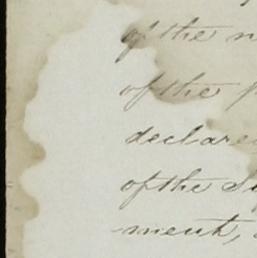 of the
of the
declare
of the Su
ment,